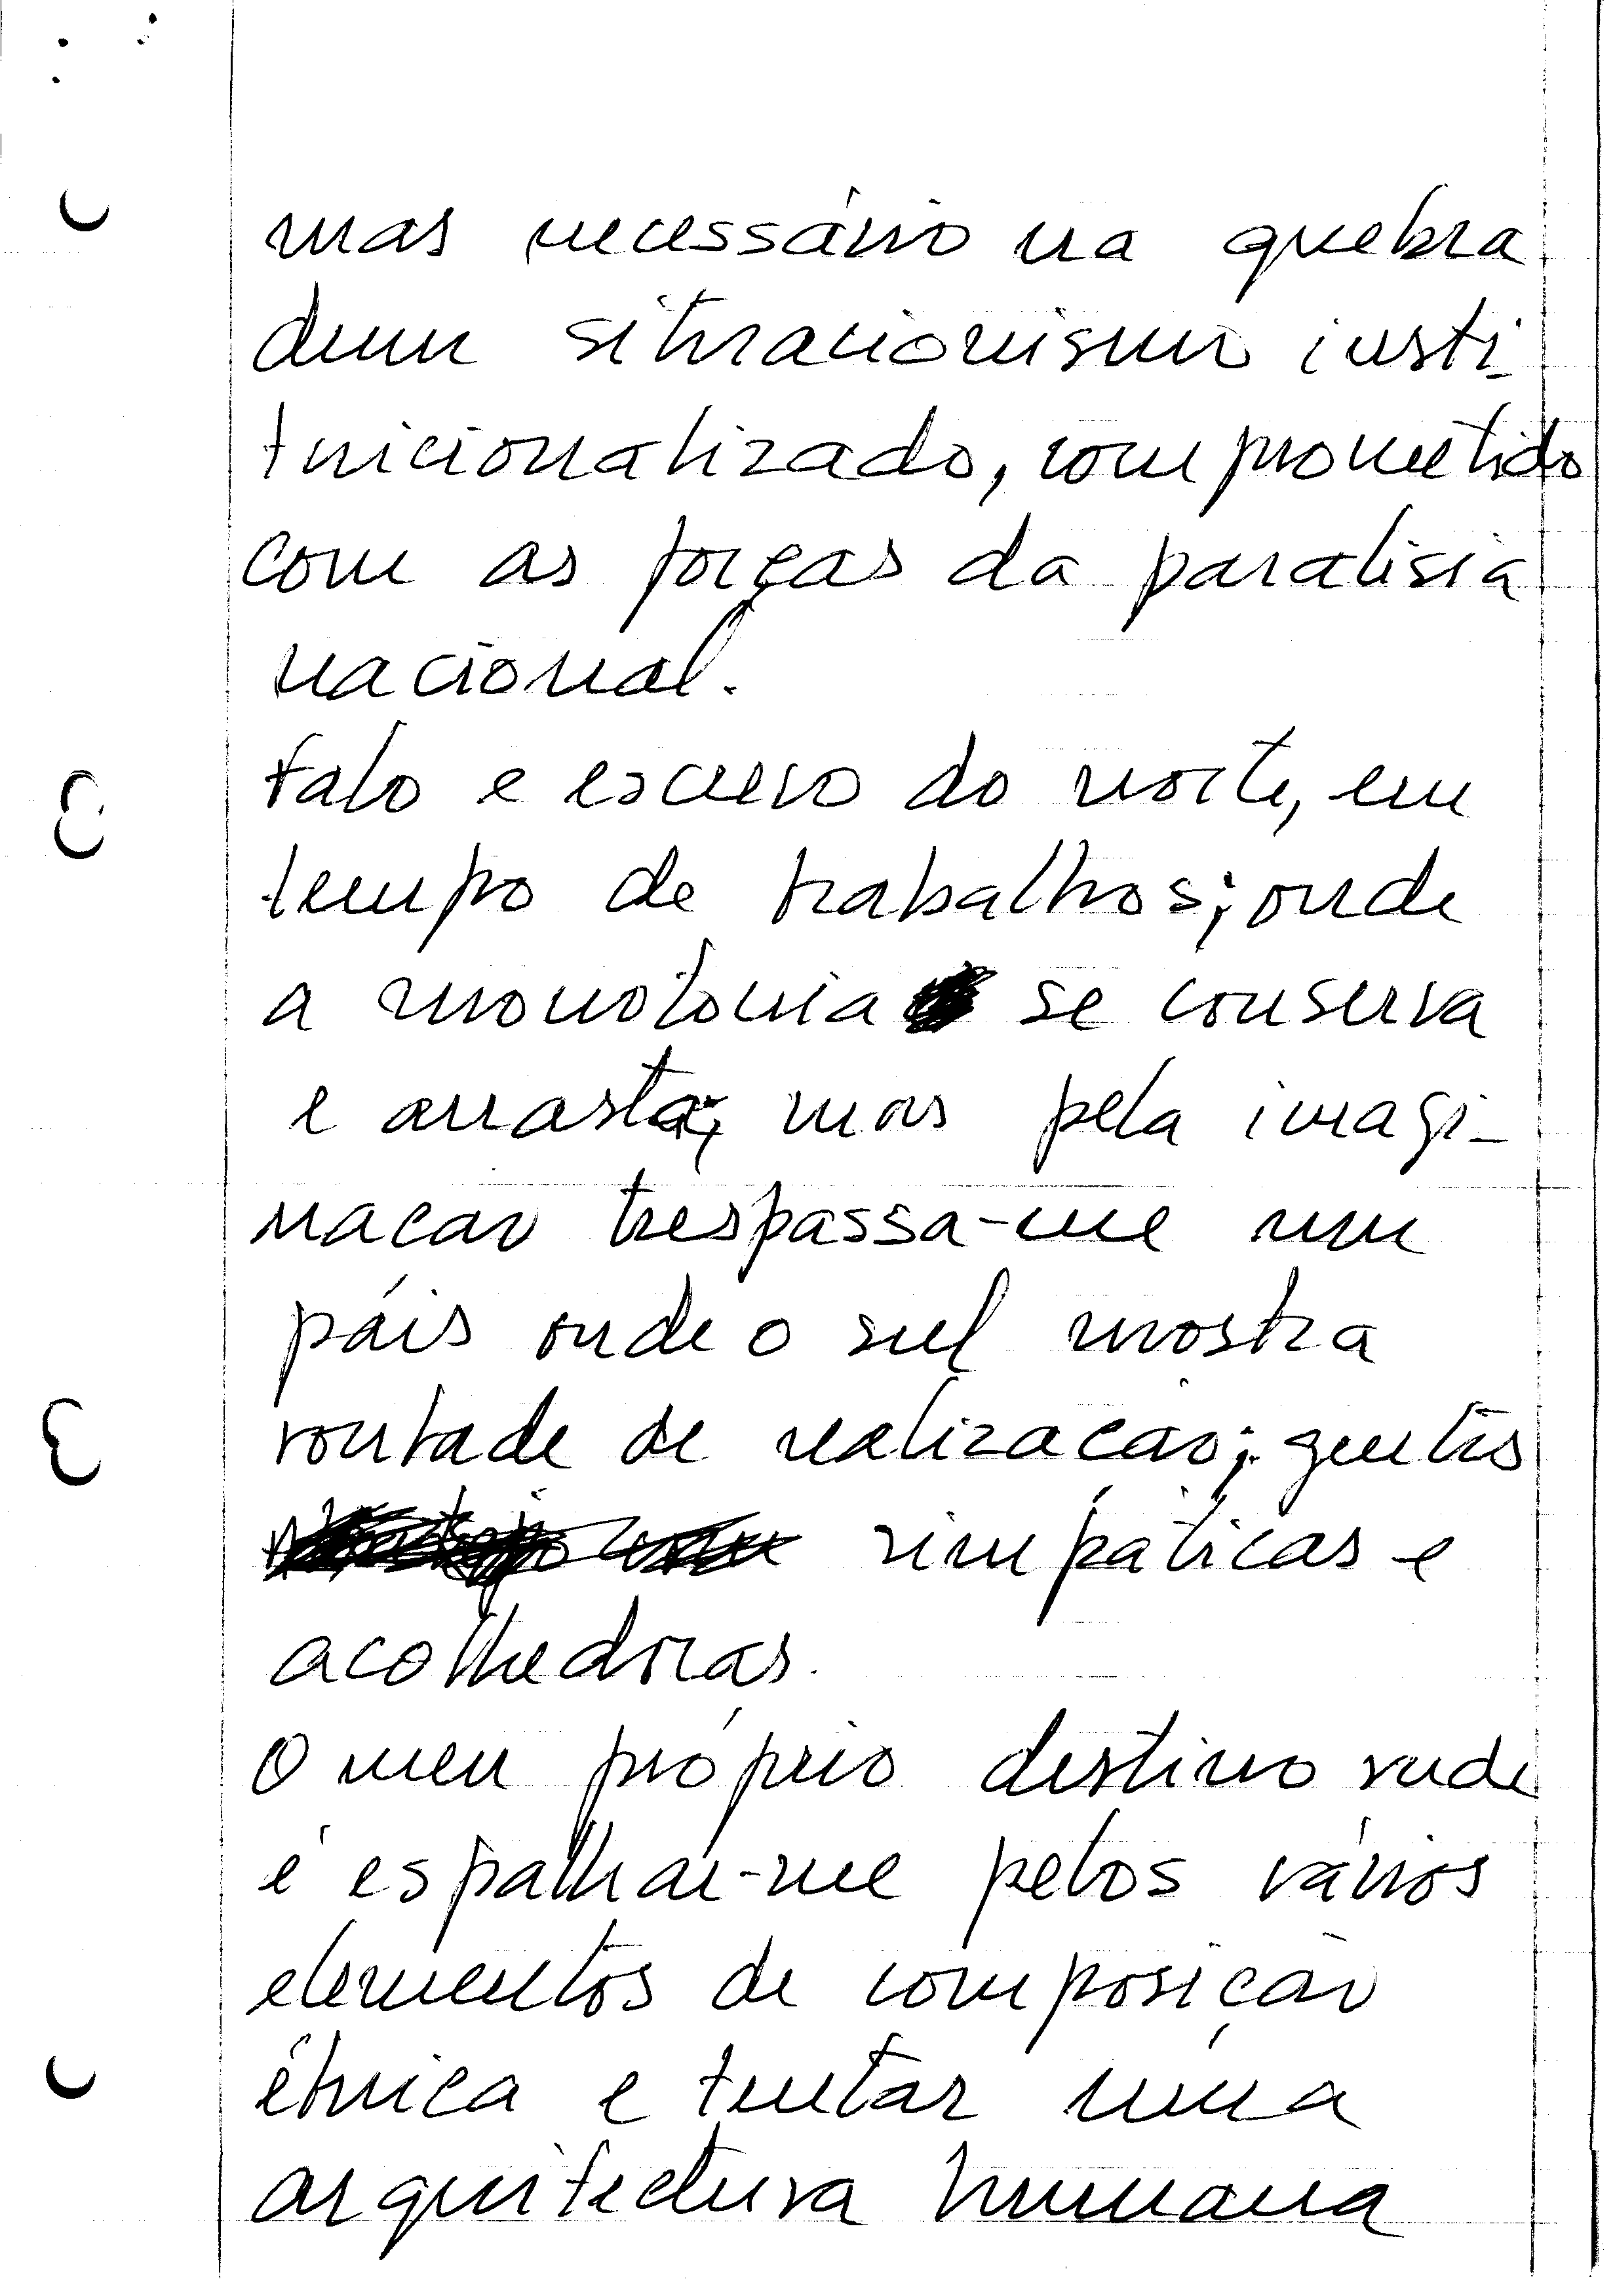 mas necessário na quebra
dum situacionismo insti-
tuicionalizado, comprometido
com as forças da paralisia
nacional.
Falo e escrevo do norte, em
tempo de trabalhos; onde
a monotonia se conserva
e arrasta; mas pela imagi-
nacao trespassa-me um
páis onde o sul mostra
vontade de realizacão; gentes
simpáticas e
acolhedoras.
O meu próprio destino rude
é espalhar-me pelos vários
elementos de composição
étnica e tentar uma
arquitectura humana